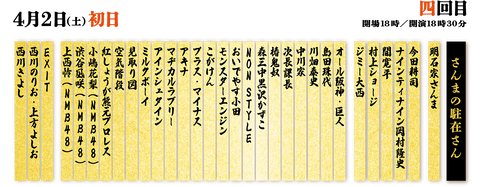 4月2日(土) 初日
四回目
開場18時／開演18時30分
さんまの駐在さん
明石家さんま
今田耕司
ナインティナイン岡村隆史
間寛平
村上ショージ
ジミー大西
オール阪神・巨人
島田珠代
川畑泰史
中川家
次長課長
椿鬼奴
森三中黒沢かずこ
NON STYLE
おいでやす小田
こがけん
モンスターエンジン
プラス・マイナス
アキナ
アヂカルラブリー
アインシュタイン
ミルクボーイ
見取り図
空気階段
紅しょうが熊元プロレス
小嶋花梨（NMB48）
渋谷凪咲（NMB48）
上西怜（NMB48）
EXIT
西川のりお・上方よしお
西川きよし